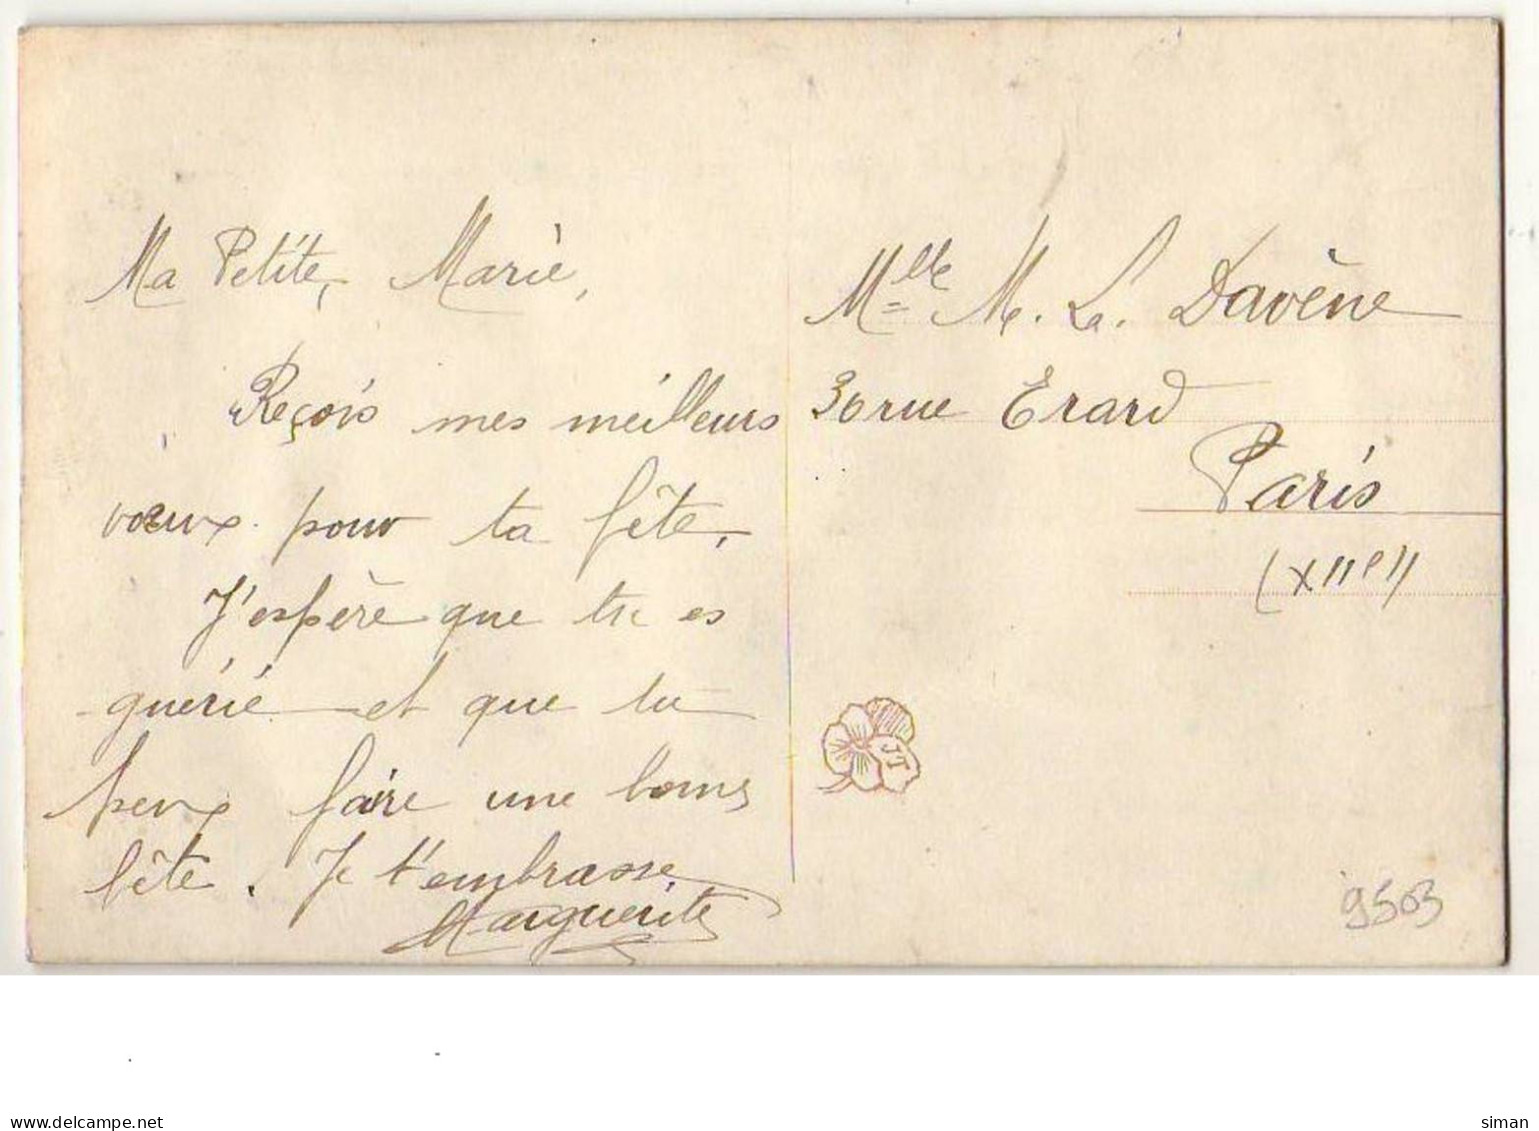 Ma Petite, Marie,
Reçois mes meilleurs
voeux pour ta fête.
J'espère que tu es
guérie et que tu
peux faire une bonne
fête. Je t'embrasse
Marguerite
Mlle M. L. Davène
30 rue Erard
Paris
(XIIe)
JT
9503
www.delcampe.net
siman